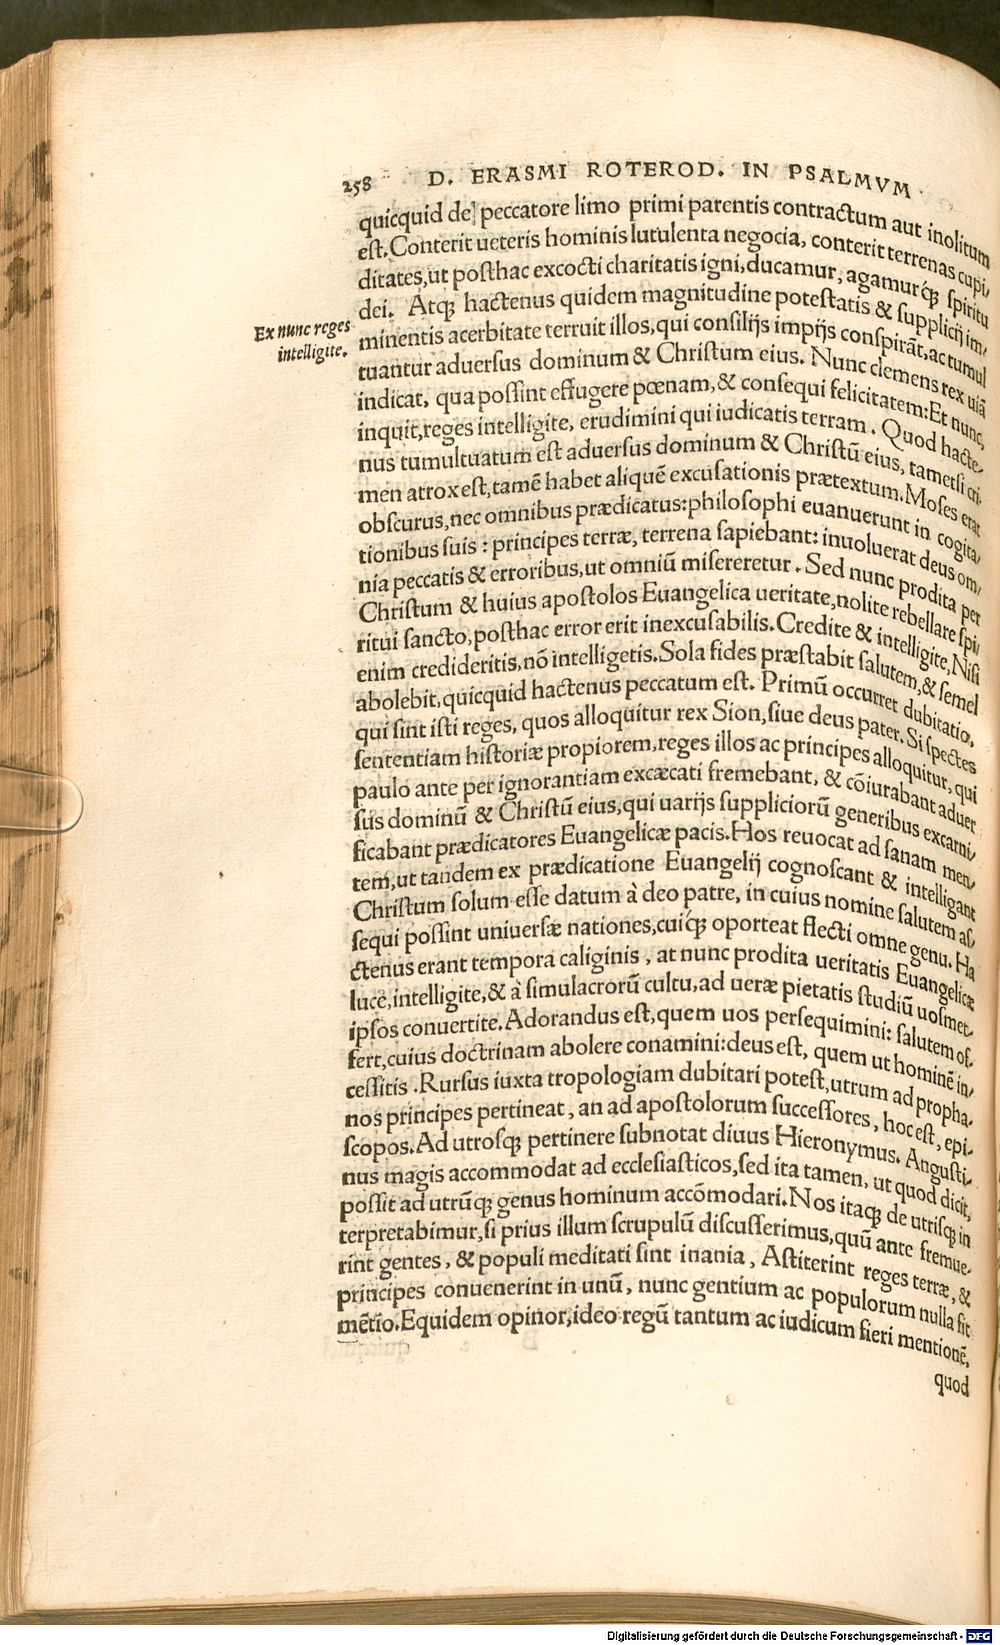 258 D. ERASMI ROTEROD. IN PSALMVM
quicquid de peccatore limo primi parentis contractum aut inolitum
est. Conterit ueteris hominis lutulenta negocia, conterit terrenas cupi-
ditates, ut posthac excocti charitatis igni, ducamur, agamurq́; spiritu
dei. Atq; hactenus quidem magnitudine potestatis & supplicij im-
Ex nunc reges
intelligite.
minentis acerbitate terruit illos, qui consilijs impijs conspirãt, ac tumul
tuantur aduersus dominum & Christum eius. Nunc clemens rex uiã
indicat, qua possint effugere pœnam, & consequi felicitatem: Et nunc,
inquit, reges intelligite, erudimini qui iudicatis terram. Quod hacte-
nus tumultuatum est aduersus dominum & Christũ eius, tametsi cri-
men atrox est, tamẽ habet aliquẽ excusationis prætextum. Moses erat
obscurus, nec omnibus prædicatus: philosophi euanuerunt in cogita-
tionibus suis: principes terræ, terrena sapiebant: inuoluerat deus om-
nia peccatis & erroribus, ut omniũ misereretur. Sed nunc prodita per
Christum & huius apostolos Euangelica ueritate, nolite rebellare spi-
ritui sancto, posthac error erit inexcusabilis. Credite & intelligite, Nisi
enim credideritis, nõ intelligetis. Sola fides præstabit salutem, & semel
abolebit, quicquid hactenus peccatum est. Primũ occurret dubitatio,
qui sint isti reges, quos alloquitur rex Sion, siue deus pater. Si spectes
sententiam historiæ propiorem, reges illos ac principes alloquitur, qui
paulo ante per ignorantiam excæcati fremebant, & cõiurabant aduer
sus dominũ & Christũ eius, qui uarijs suppliciorũ generibus excarni-
ficabant prædicatores Euangelicæ pacis. Hos reuocat ad sanam men-
tem, ut tandem ex prædicatione Euangelij cognoscant & intelligant
Christum solum esse datum à deo patre, in cuius nomine salutem as-
sequi possint uniuersæ nationes, cuiq́; oporteat flecti omne genu. Ha
ctenus erant tempora caliginis, at nunc prodita ueritatis Euangelicæ
luce, intelligite, & à simulacrorũ cultu, ad ueræ pietatis studiũ uosmet-
ipsos conuertite. Adorandus est, quem uos persequimini: salutem of-
fert, cuius doctrinam abolere conamini: deus est, quem ut hominẽ in-
cessitis. Rursus iuxta tropologiam dubitari potest, utrum ad propha-
nos principes pertineat, an ad apostolorum successores, hoc est, epi-
scopos. Ad utrosq; pertinere subnotat diuus Hieronymus. Angusti-
nus magis accommodat ad ecclesiasticos, sed ita tamen, ut quod dicit,
possit ad utrũq; genus hominum accõmodari. Nos itaq; de utrisq; in
terpretabimur, si prius illum scrupulũ discusserimus, quũ ante fremue-
rint gentes, & populi meditati sint inania, Astiterint reges terræ, &
principes conuenerint in unũ, nunc gentium ac populorum nulla fit
mẽtio. Equidem opinor, ideo regũ tantum ac iudicum fieri mentionẽ,
quod
Digitalisierung gefördert durch die Deutsche Forschungsgemeinschaft - DFG